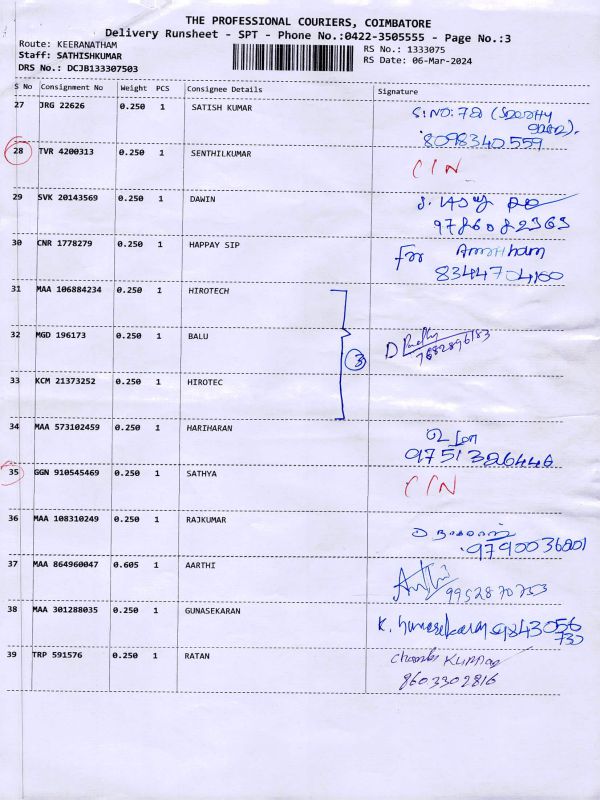 THE PROFESSIONAL COURIERS, COIMBATORE
Delivery Runsheet - SPT - Phone No.:0422-3505555 - Page No.:3
Route: KEERANATHAM RS No.: 1333075
Staff: SATHISHKUMAR RS Date: 06-Mar-2024
DRS No.: DCJB133307503
S No Consignment No Weight PCS Consignee Details Signature
27 JRG 22626 0.250 1 SATISH KUMAR S.NO: 78
8098340559
28 TVR 4200313 0.250 1 SENTHILKUMAR CIN
29 SVK 20143569 0.250 1 DAWIN
9786082363
30 CNR 1778279 0.250 1 HAPPAY SIP For
8344704160
31 MAA 106884234 0.250 1 HIROTECH
32 MGD 196173 0.250 1 BALU 3 D
7682896183
33 KCM 21373252 0.250 1 HIROTEC
34 MAA 573102459 0.250 1 HARIHARAN
9751326446
35 GGN 910545469 0.250 1 SATHYA CIN
36 MAA 108310249 0.250 1 RAJKUMAR
9790036801
37 MAA 864960047 0.605 1 AARTHI 9952870753
38 MAA 301288035 0.250 1 GUNASEKARAN K. Gunasekaran 9843056
730
39 TRP 591576 0.250 1 RATAN
8603302816